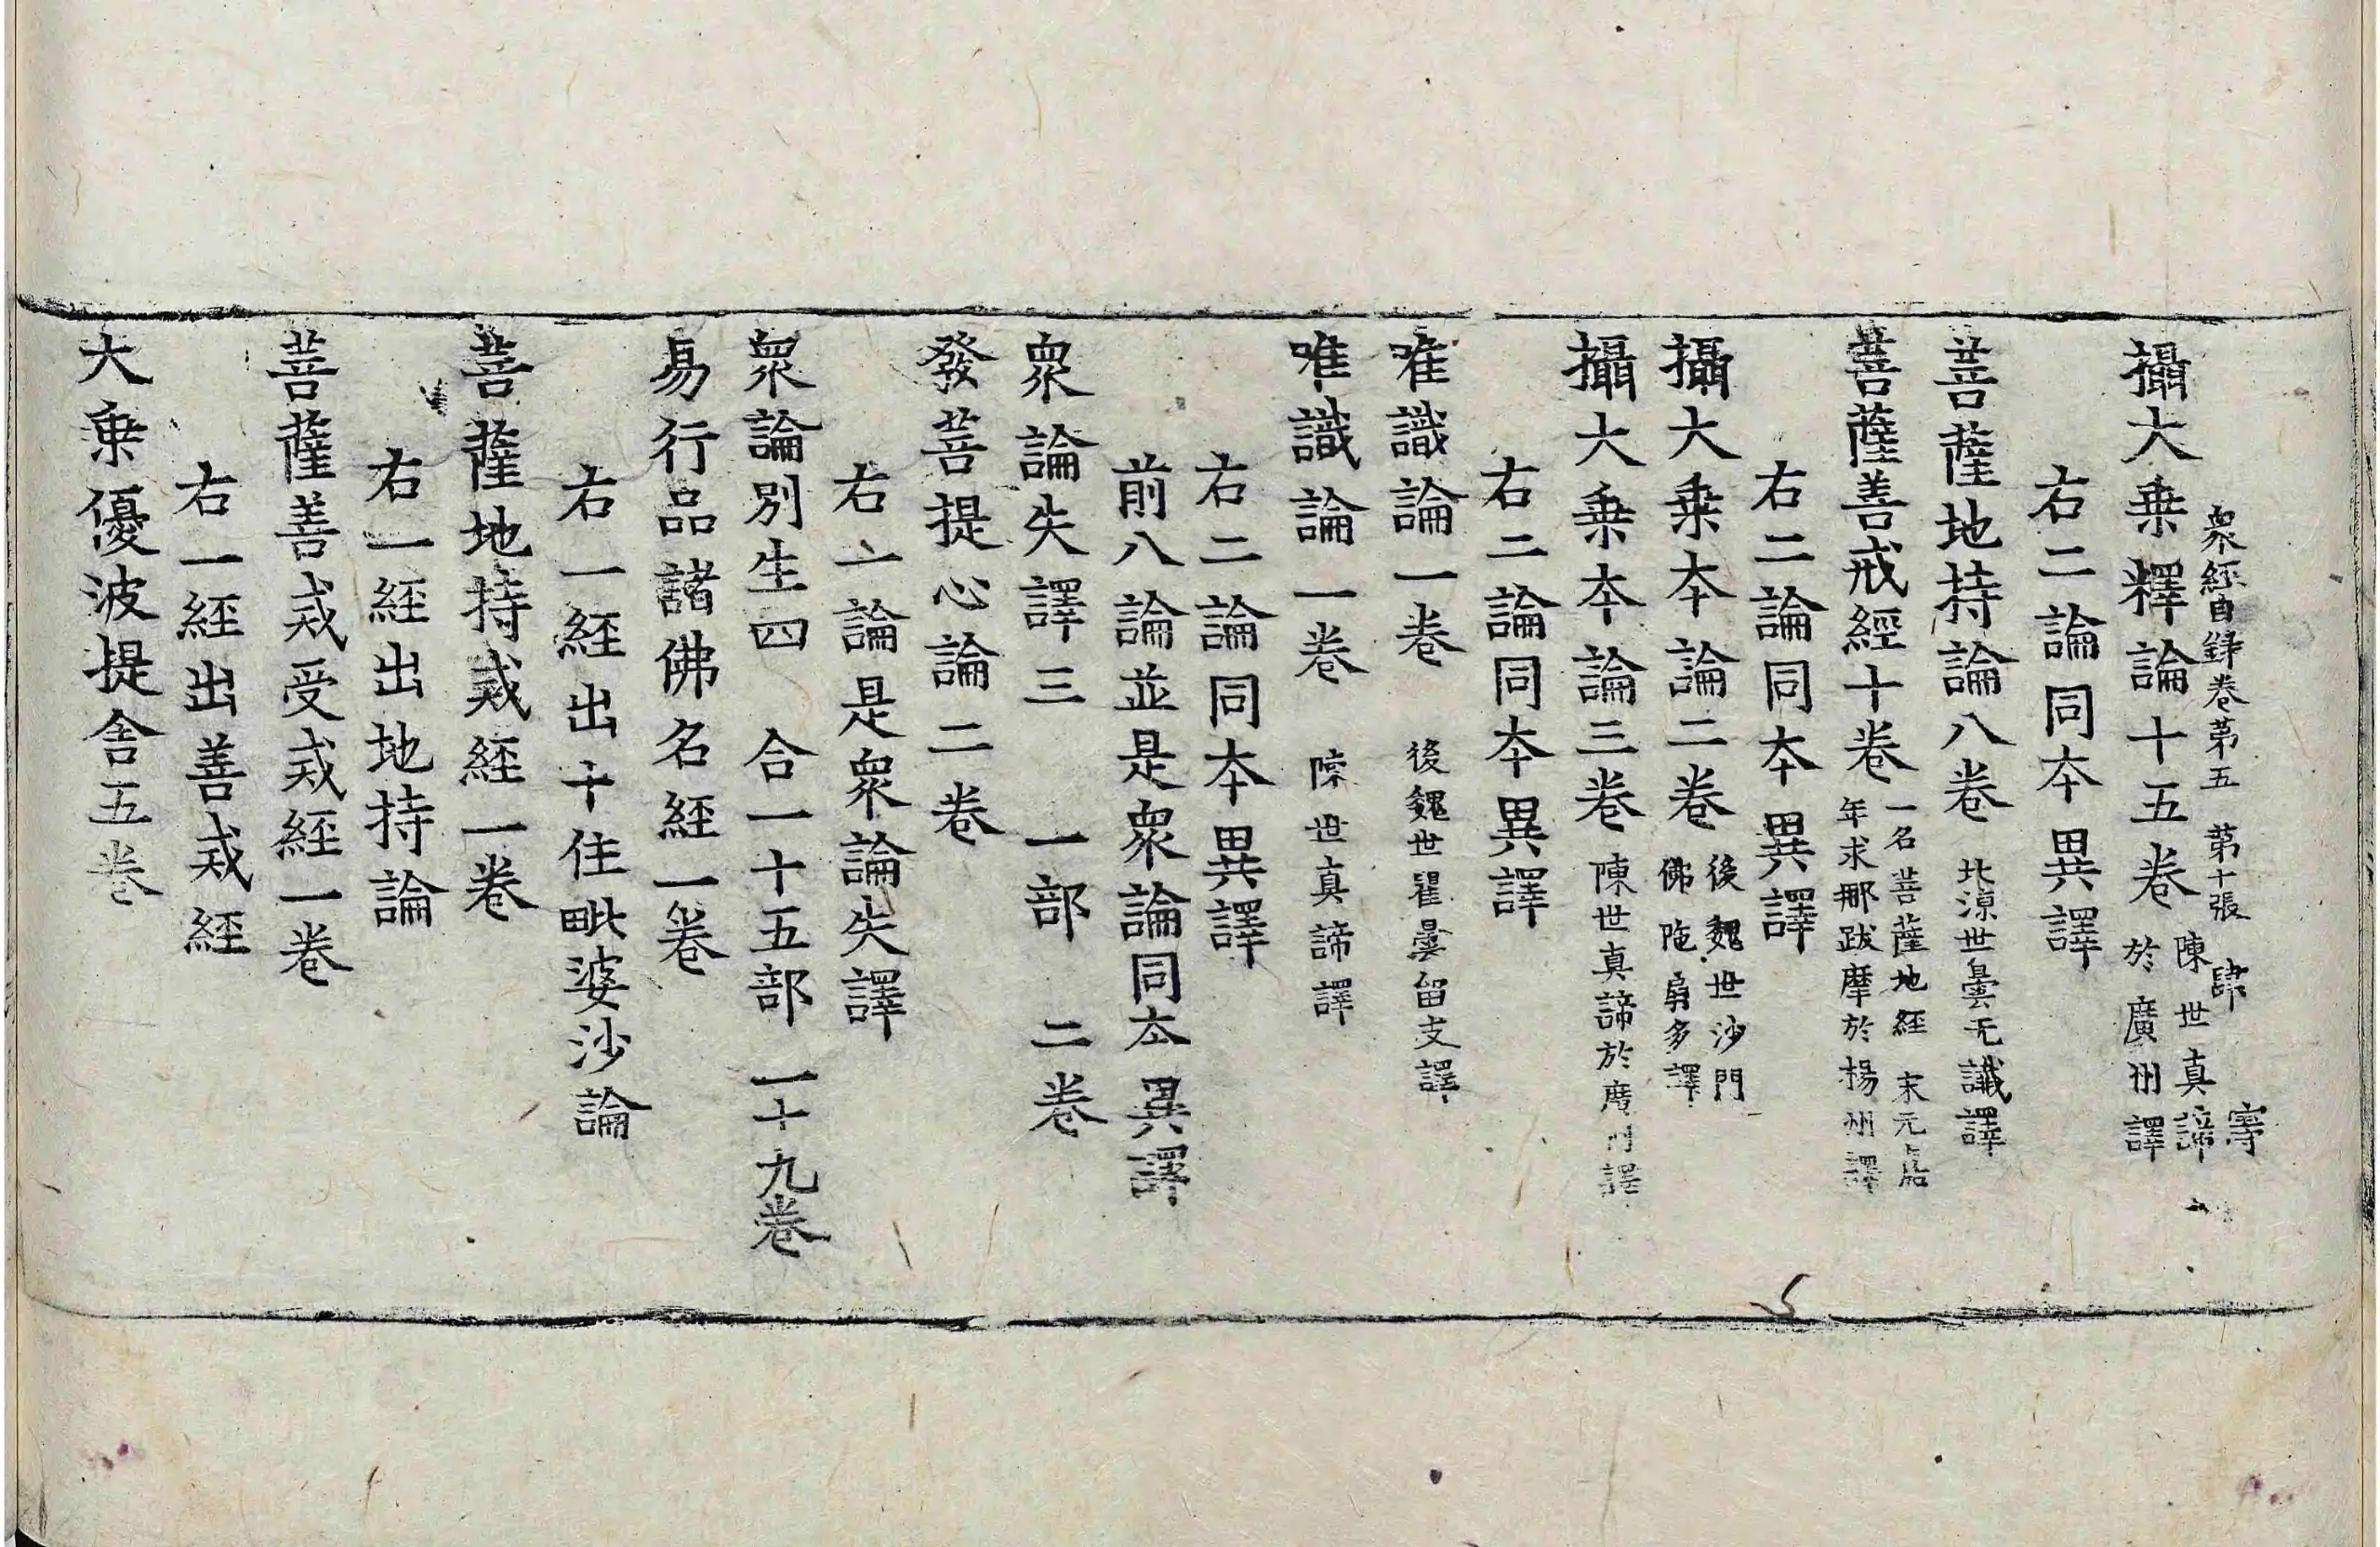 衆經目録卷第五 第十張 肆 寧
攝大乗釋論十五卷 陳世真諦於廣州譯
右二論同夲異譯
菩薩地持論八卷 北涼世曇无讖譯
菩薩善戒經十卷 一名菩薩地經 宋元嘉年求那跋摩於揚州譯
右二論同夲異譯
攝大乗夲論二卷 後魏世沙門佛陁扇多譯
攝大乗夲論三卷 陳世真諦於廣州譯
右二論同夲異譯
唯識論一卷 後魏世瞿曇留支譯
唯識論一卷 陳世真諦譯
右二論同夲異譯
前八論並是衆論同夲異譯
衆論失譯三 一部 二卷
發菩提心論二卷
右一論是衆論失譯
衆論別生四 合一十五部 一十九卷
易行品諸佛名經一卷
右一經出十住毗婆沙論
菩薩地持戒經一卷
右一經出地持論
菩薩善戒受戒經一卷
右一經出善戒經
大乗優波提舍五卷